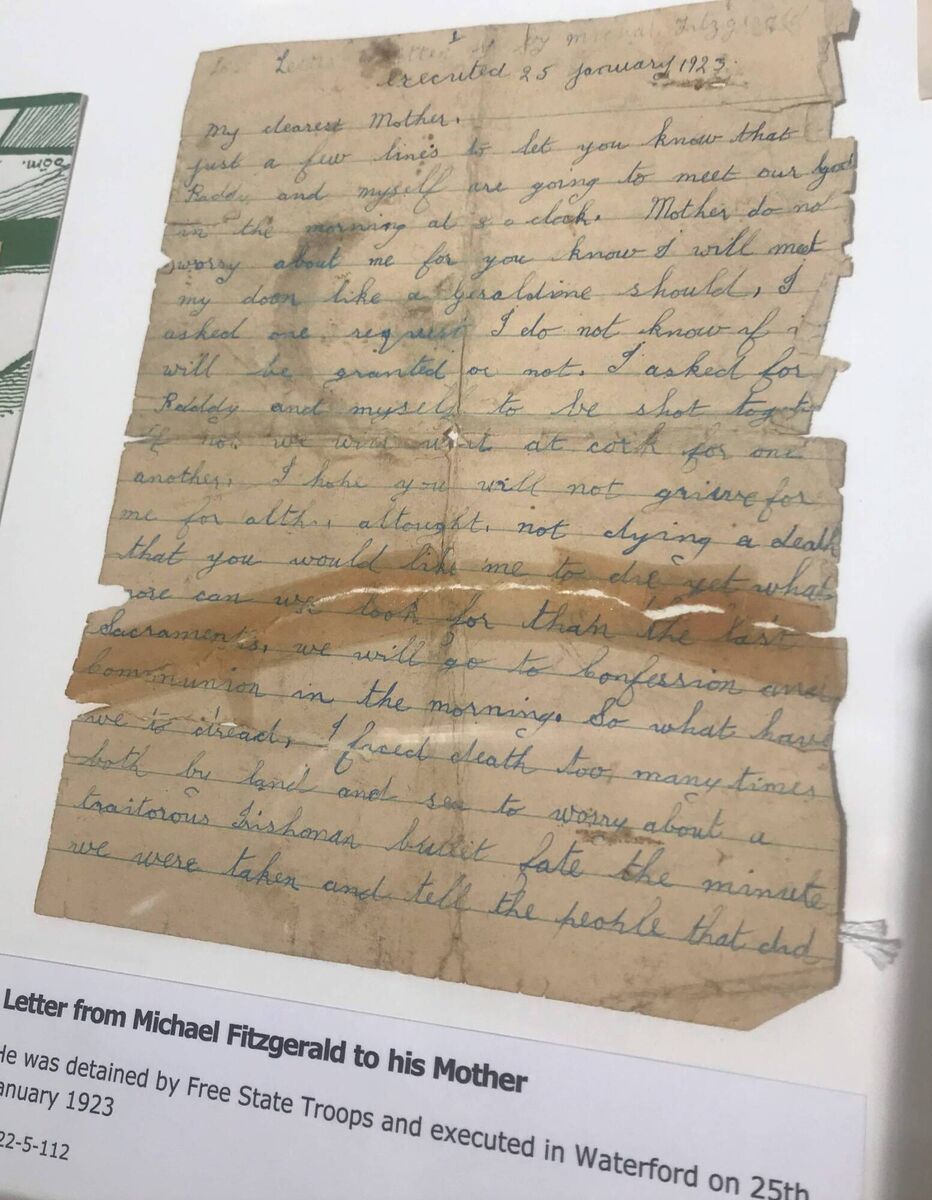 Letter by Michael Fitzgerald
executed 25 January 1923.
My dearest Mother.
just a few lines to let you know that
Raddy and myself are going to meet our God
in the morning at 8 o clock. Mother do not
worry about me for you know I will meet
my doon like a Geraldine should, I
asked one request I do not know if i
will be granted or not. I asked for
Raddy and myself to be shot togethe
If not we will wait at cork for one
another. I hope you will not grieve for
me for alth, altought, not dying a death
that you would like me to die yet what
more can we look for than the last
Sacraments, we will go to Confession and
Communion in the morning. So what have
we to dread, I faced death too many times
both by land and sea to worry about a
traitorous Irishman bullet fate the minute
we were taken and tell the people that did
Letter from Michael Fitzgerald to his Mother
He was detained by Free State Troops and executed in Waterford on 25th
anuary 1923
22-5-112